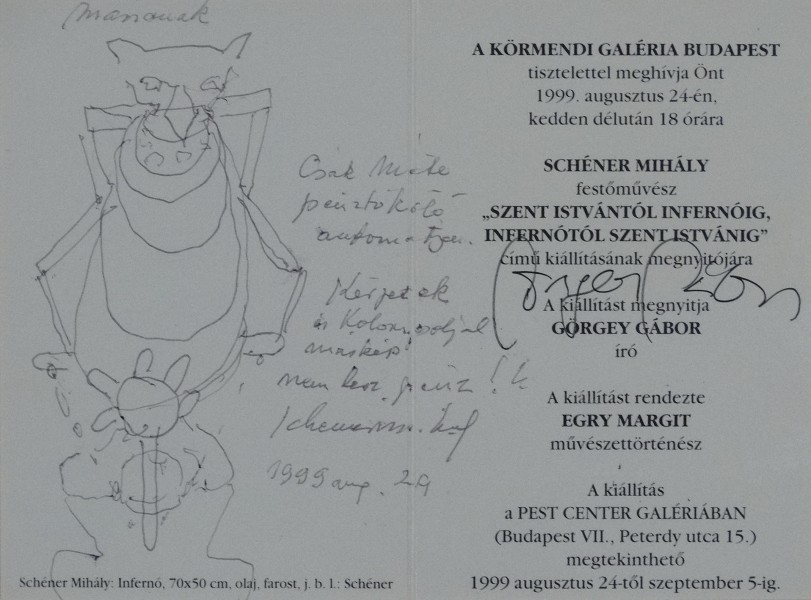 Csák Máté
pénzköltő
automatája.
Kérjetek
és
nem lesz pénz!
1999 aug. 24
Schéner Mihály: Infernó, 70x50 cm, olaj, farost, j. b. l.: Schéner
A KÖRMENDI GALÉRIA BUDAPEST
tisztelettel meghívja Önt
1999. augusztus 24-én,
kedden délután 18 órára
SCHÉNER MIHÁLY
festőművész
„SZENT ISTVÁNTÓL INFERNÓIG,
INFERNÓTÓL SZENT ISTVÁNIG”
című kiállításának megnyitójára
A kiállítást megnyitja
GÖRGEY GÁBOR
író
A kiállítást rendezte
EGRY MARGIT
művészettörténész
A kiállítás
a PEST CENTER GALÉRIÁBAN
(Budapest VII., Peterdy utca 15.)
megtekinthető
1999 augusztus 24-től szeptember 5-ig.